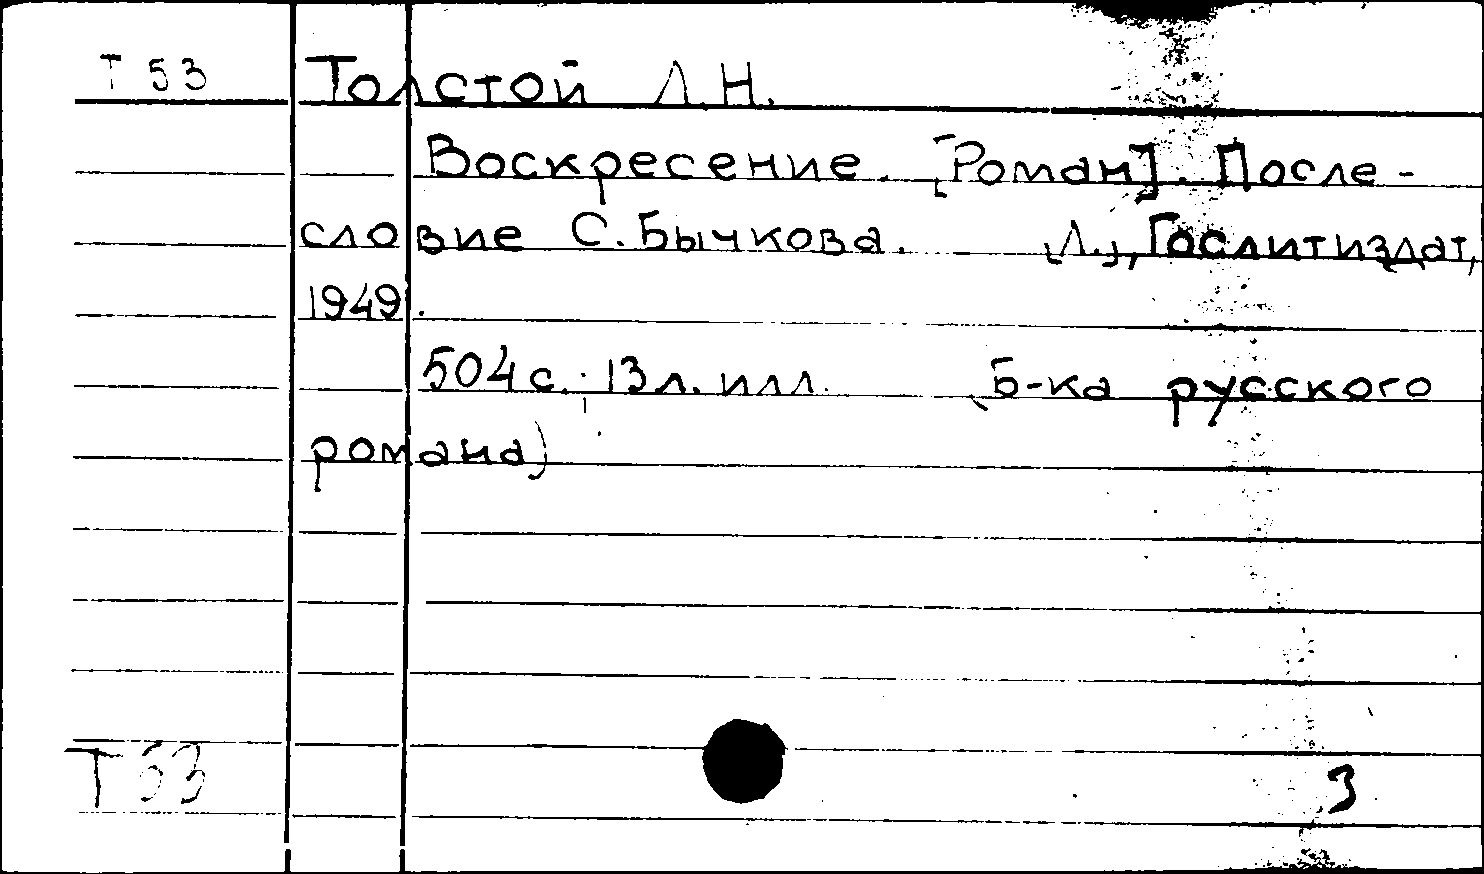 Т 53 Толстой Л.Н.
Воскресение. [Роман]. После-
словие С. Бычкова. [Л.], Гослитиздат,
1949.
504 с.; 13 л. илл. (Б-ка русского
романа)
Т 53
3